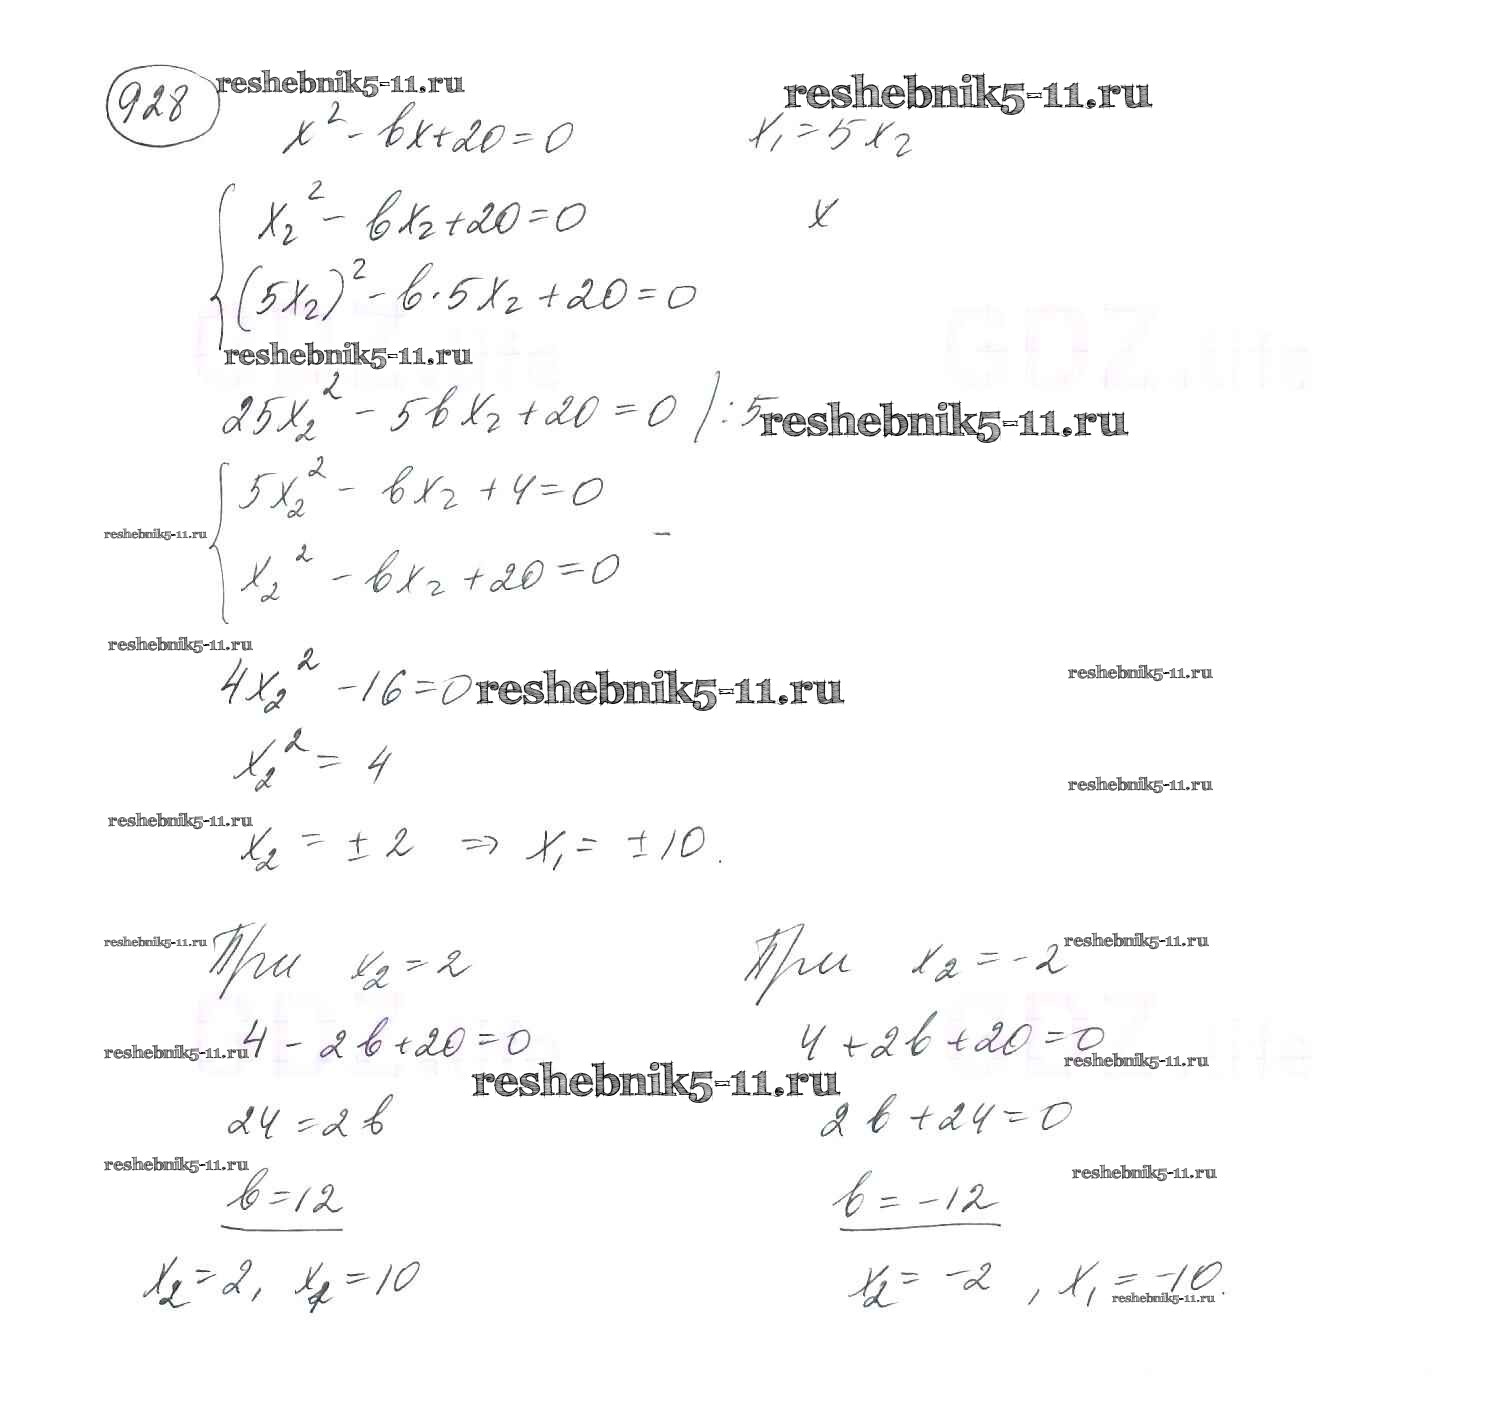 928 reshebnik5-11.ru reshebnik5-11.ru
x² - bx + 20 = 0 x₁ = 5x₂
x₂² - bx₂ + 20 = 0 x
(5x₂)² - b·5x₂ + 20 = 0
GDZ.life GDZ.life
reshebnik5-11.ru
25x₂² - 5bx₂ + 20 = 0 |:5 reshebnik5-11.ru
5x₂² - bx₂ + 4 = 0
reshebnik5-11.ru -
x₂² - bx₂ + 20 = 0
reshebnik5-11.ru
4x₂² - 16 = 0 reshebnik5-11.ru reshebnik5-11.ru
x₂² = 4 reshebnik5-11.ru
reshebnik5-11.ru
x₂ = ± 2 ⇒ x₁ = ± 10.
reshebnik5-11.ru При x₂ = 2 При x₂ = -2 reshebnik5-11.ru
GDZ.life GDZ.life
reshebnik5-11.ru 4 - 2b + 20 = 0 4 + 2b + 20 = 0 reshebnik5-11.ru
reshebnik5-11.ru
24 = 2b 2b + 24 = 0
reshebnik5-11.ru reshebnik5-11.ru
b = 12 b = -12
x₂ = 2, x₂ = 10 x₂ = -2, x₁ = -10.
reshebnik5-11.ru